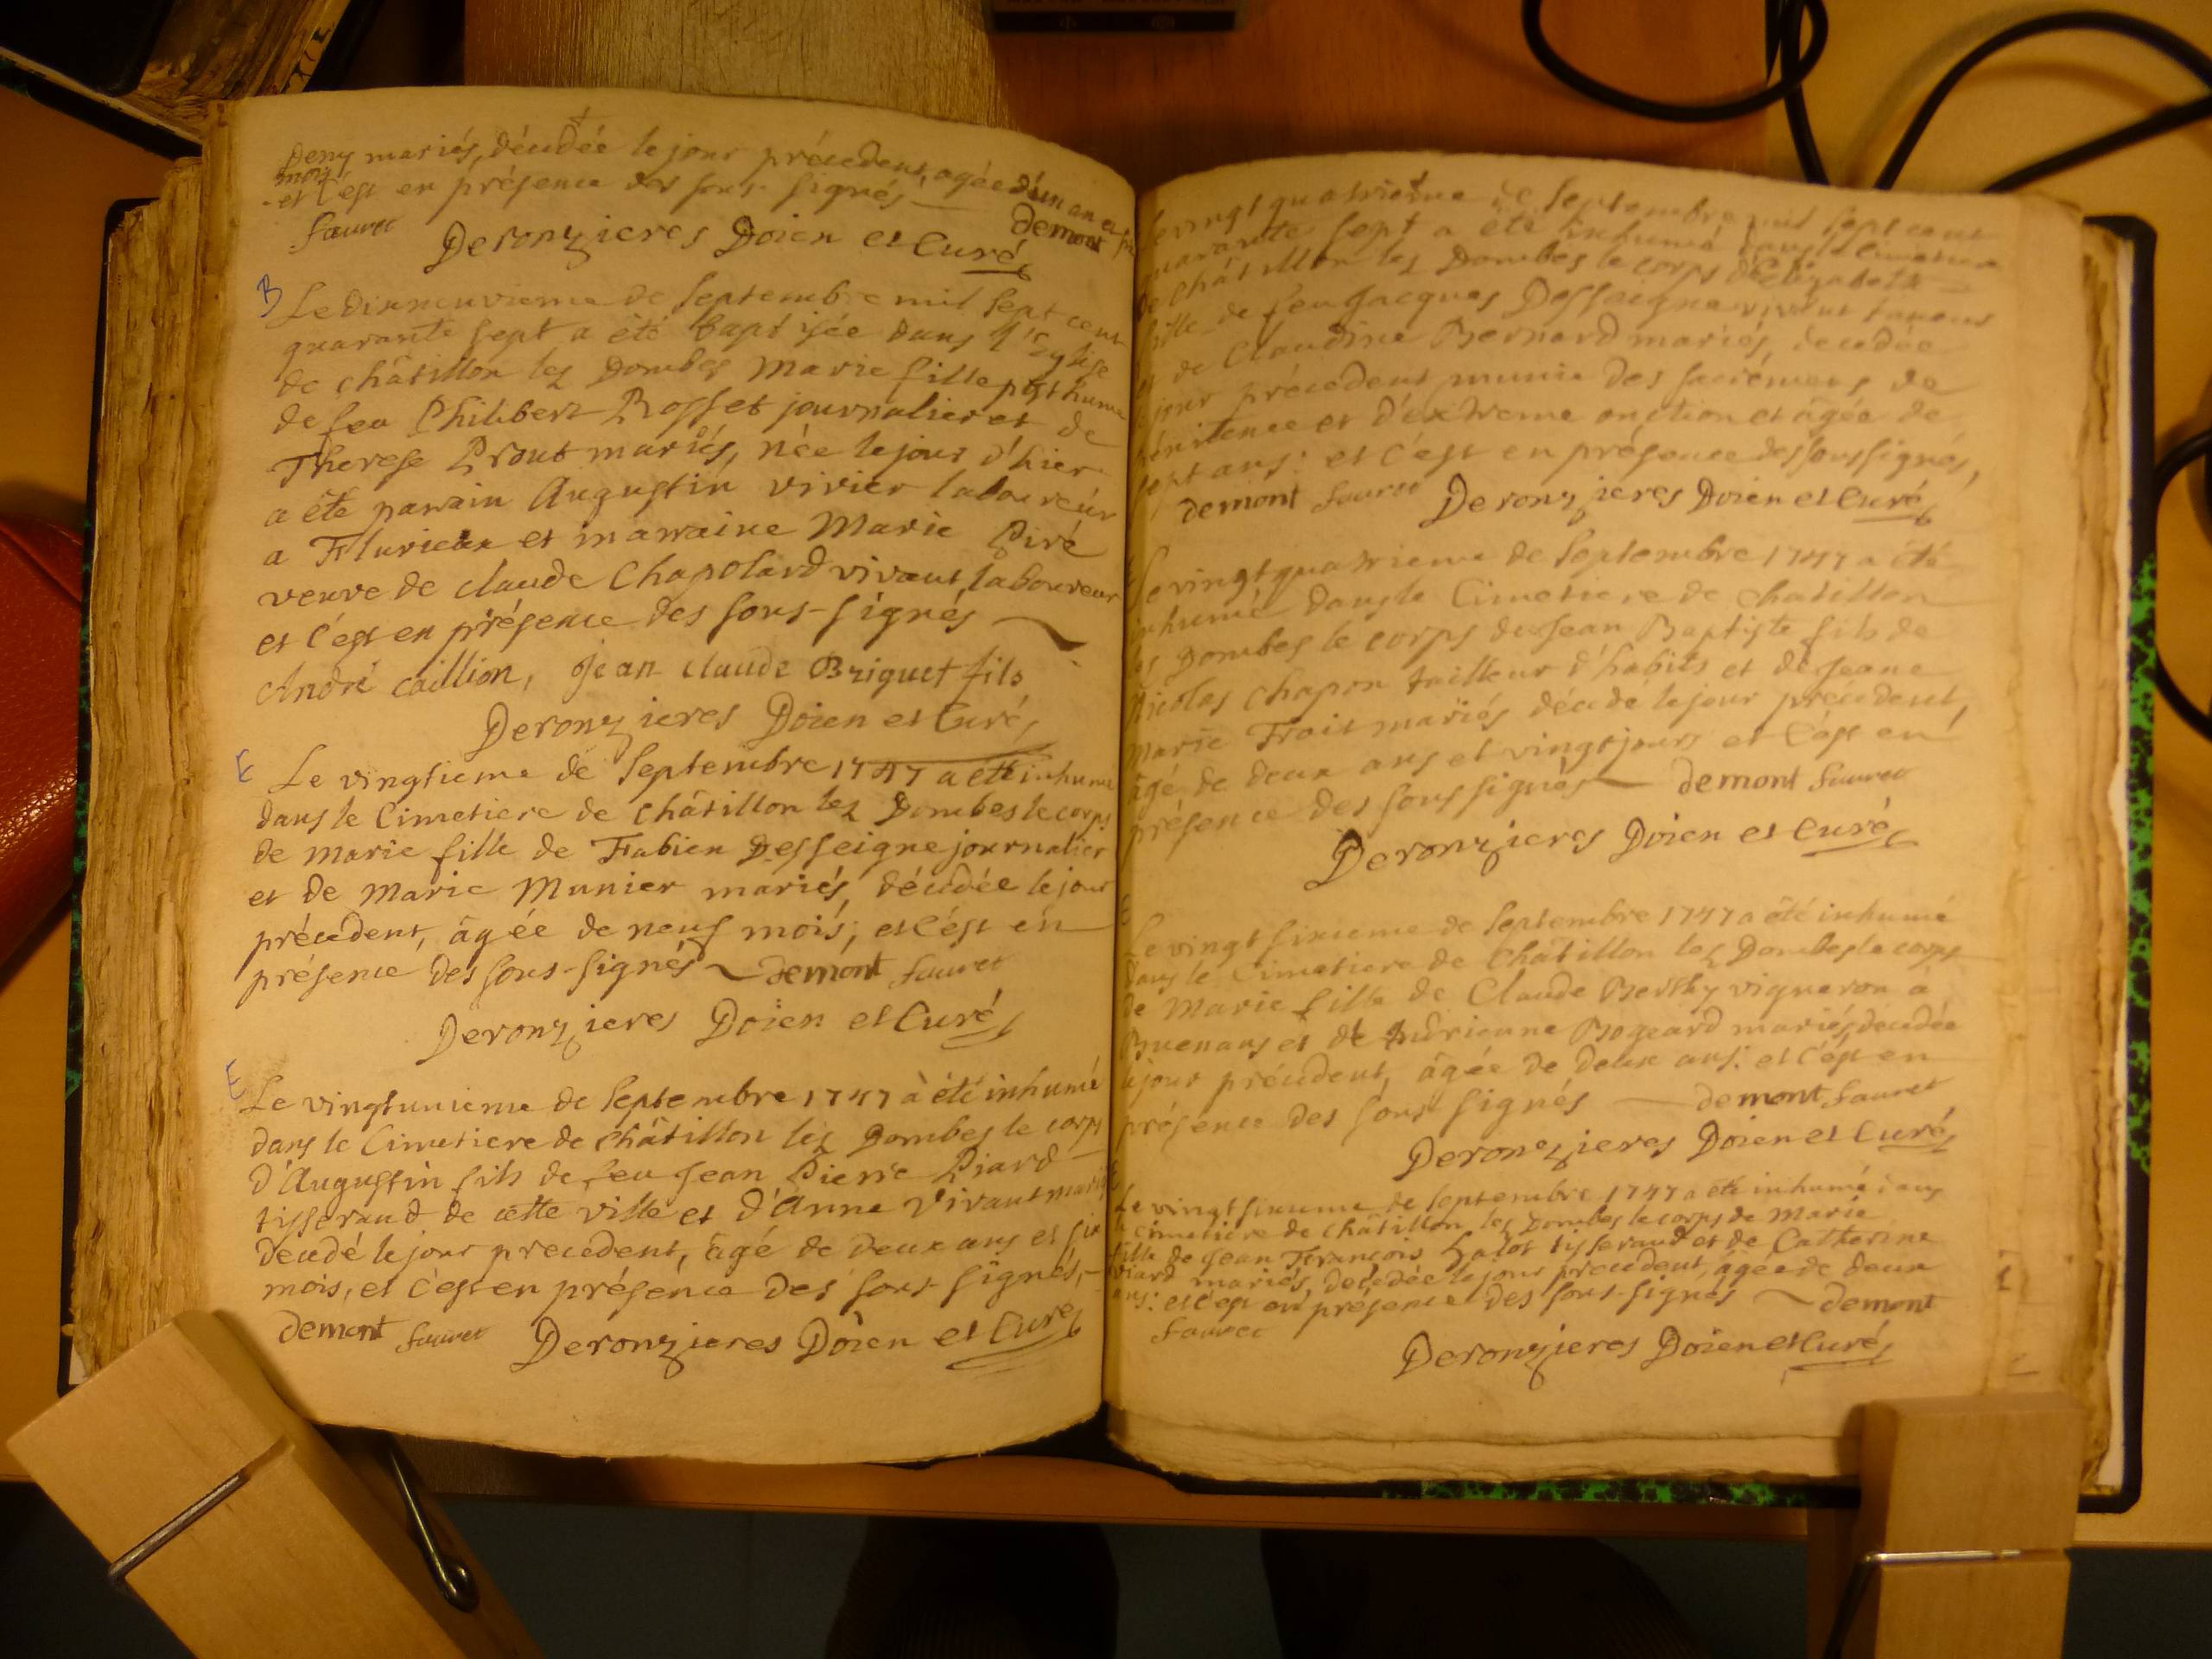 Deny mariés, décédée le jour précedent, agée d'un an et
mois
et c'est en présence des sous-signés
fauret demont
Deronzieres Doien et Curé
B Le dixneuvieme de Septembre mil Sept cent
quarante sept a été baptisée dans l'Eglise
de châtillon lez Dombes Marie fille posthume
de feu Philibert Rosset journalier et de
Therese Prout mariés, née le jour d'hier
a été parrain Augustin vivier laboureur
a Flurieux et marraine Marie Piré
veuve de claude Chapolard vivant laboureur
et c'est en présence des sous-signés
André caillion, Jean claude Briguet fils
Deronzieres Doien et Curé
E Le vingtieme de Septembre 1747 a été inhumé
dans le Cimetiere de Châtillon lez Dombes le corps
de marie fille de Fabien Desseigne journalier
et de Marie Munier mariés, décédée le jour
précedent, âgée de neuf mois; et c'est en
présence des sous-signés demont fauret
Deronzieres Doien et Curé
E Le vingtunieme de Septembre 1747 à été inhumé
dans le Cimetiere de châtillon lez Dombes le corps
d'Augustin fils de feu Jean Pierre Piard
tisserand de cette ville et d'Anne Vivant mariés
decedé le jour precedent, âgé de deux ans et six
mois, et c'est en présence des sous-signés,
demont fauret Deronzieres Doien et Curé
Le vingt quatrieme de Septembre mil sept cent
quarante sept a été inhumé dans le Cimetiere
de châtillon lez Dombes le corps d'Elizabeth
fille de feu Jacques Dessaigne vivant
et de Claudine Bernard mariés, decedée
le jour précedent munie des sacremens de
pénitence et d'extreme onction et âgée de
sept ans: et c'est en présence des soussignés,
demont fauret Deronzieres Doien et Curé
Le vingt quatrieme de Septembre 1747 a été
inhumé dans le Cimetiere de chatillon
les Dombes le corps de Jean Baptiste fils de
Nicolas Chapon tailleur d'habits et de Jeane
Marie Frait mariés décédé le jour precedent,
âgé de deux ans et vingt jours et c'est en
présence des sous signés demont fauret
Deronzieres Doien et Curé
Le vingt sixieme de Septembre 1747 a été inhumé
dans le Cimetiere de Châtillon lez Dombes le corps
de Marie fille de Claude vigneron à
Buenans et de Andrienne Bogeard mariés, decedée
le jour précedent, âgée de deux ans: et c'est en
présence des sous signés demont fauret
Deronzieres Doien et Curé
Le vingt sixieme de Septembre 1747 a été inhumé dans
le cimetiere de châtillon lez Dombes le corps de Marie
fille de Jean François tisserand et de Catherine
mariés, decedée le jour precedent, âgée de deux
ans: et c'est en présence des sous-signés demont
fauret
Deronzieres Doien et Curé